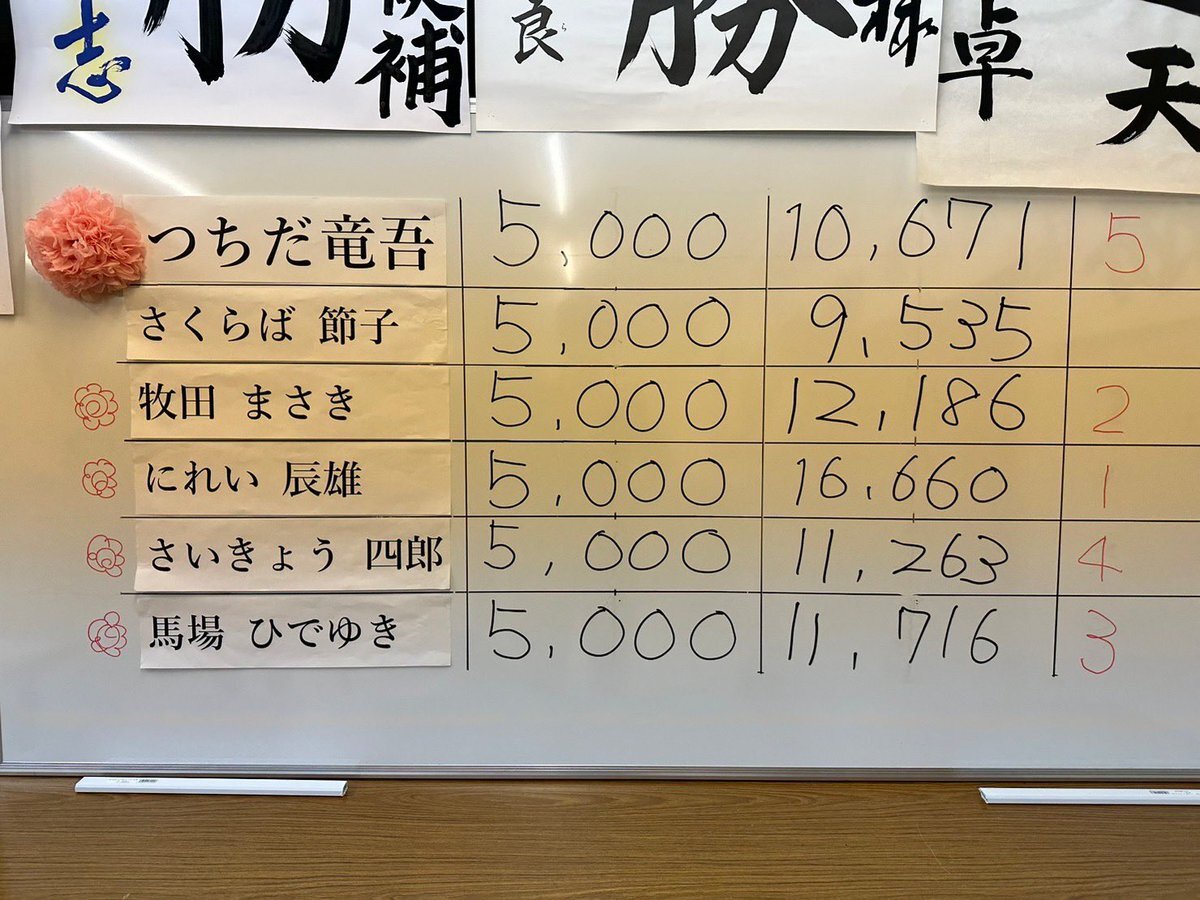 志
勝
候補
良
ら
勝
様
卓
天
つちだ竜吾 5,000 10,671 5
さくらば 節子 5,000 9,535
牧田 まさき 5,000 12,186 2
にれい 辰雄 5,000 16,660 1
さいきょう 四郎 5,000 11,263 4
馬場 ひでゆき 5,000 11,716 3